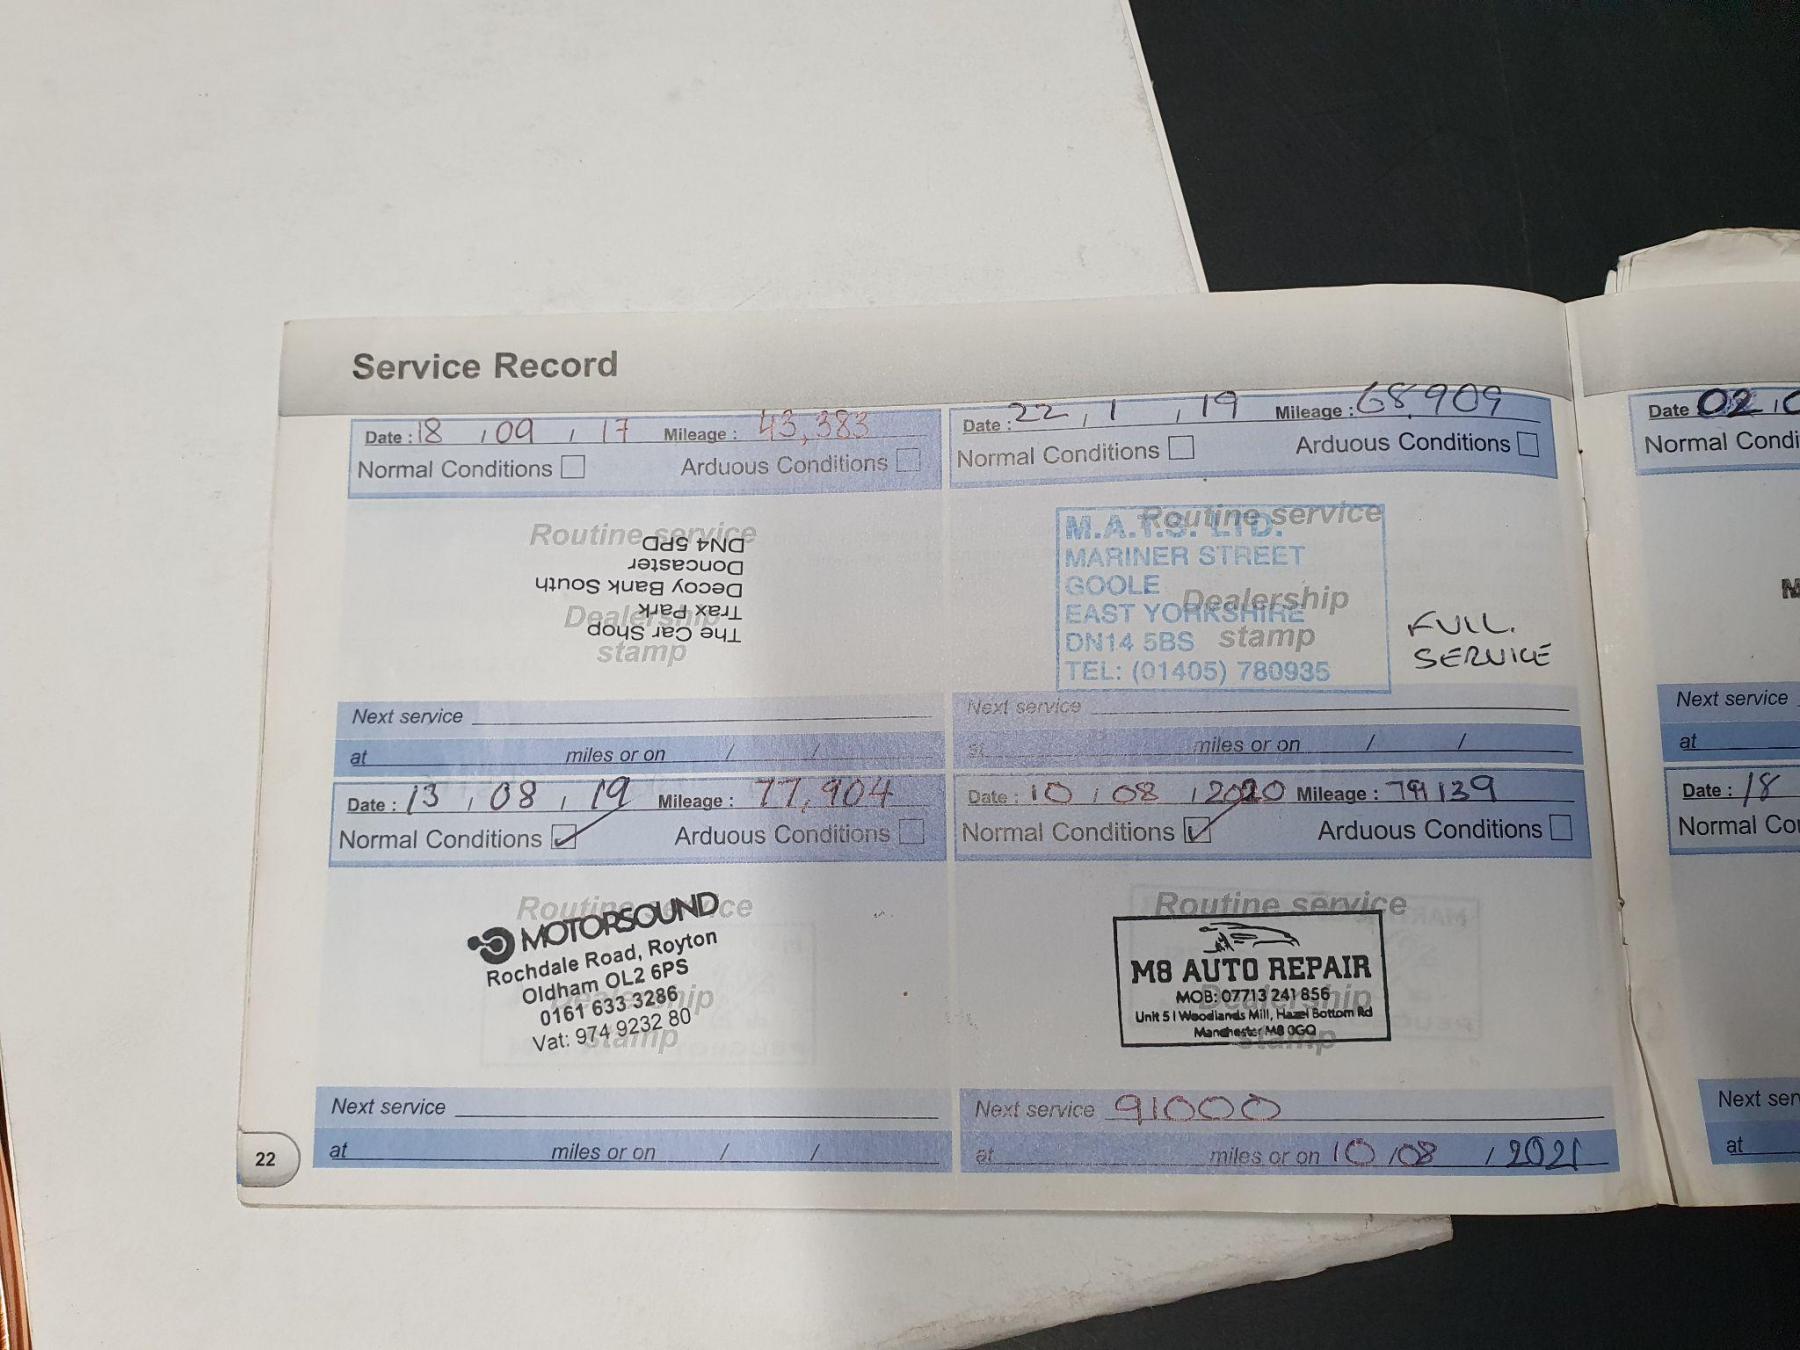 Service Record
Date : 18 / 09 / 17 Mileage : 43,383
Normal Conditions Arduous Conditions
Routine service
Dealership
stamp
The Car Shop
Trax Park
Decoy Bank South
Doncaster
DN4 5PD
Next service
at miles or on / /
Date : 22 / 1 / 19 Mileage : 68,909
Normal Conditions Arduous Conditions
Routine service
Dealership
stamp
M.A.T.S. LTD.
MARINER STREET
GOOLE
EAST YORKSHIRE
DN14 5BS
TEL: (01405) 780935
FULL.
SERVICE
Next service
at miles or on / /
Date : 13 / 08 / 19 Mileage : 77,904
Normal Conditions Arduous Conditions
Routine service
Dealership
stamp
MOTORSOUND
Rochdale Road, Royton
Oldham OL2 6PS
0161 633 3286
Vat: 974 9232 80
Next service
at miles or on / /
Date : 10 / 08 / 2020 Mileage : 79139
Normal Conditions Arduous Conditions
Routine service
Dealership
stamp
M8 AUTO REPAIR
MOB: 07713 241 856
Unit 51 Woodlands Mill, Hazel Bottom Rd
Manchester M8 0GQ
Next service 91000
at miles or on 10 / 08 / 2021
22
Date 02
Normal
Next service
at
Date : 18
Normal
Next
at